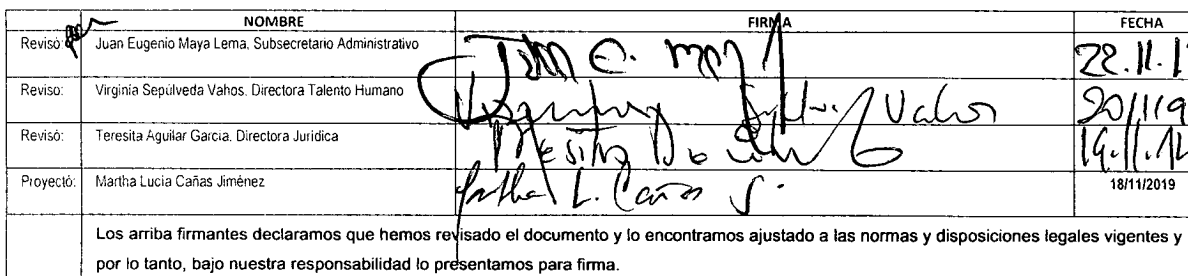 NOMBRE FIRMA FECHA
Revisó Juan Eugenio Maya Lema, Subsecretario Administrativo Juan E. 22.11.1
Reviso: Virginia Sepúlveda Vahos. Directora Talento Humano Vahos
Revisó: Teresita Aguilar García. Directora Jurídica
Proyectó: Martha Lucia Cañas Jiménez Martha L. Cañas J. 18/11/2019
Los arriba firmantes declaramos que hemos revisado el documento y lo encontramos ajustado a las normas y disposiciones legales vigentes y
por lo tanto, bajo nuestra responsabilidad lo presentamos para firma.